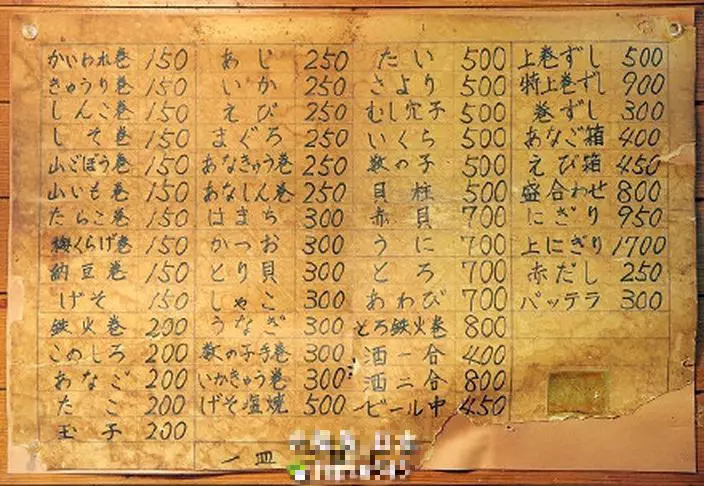 かいわれ巻 150
きゅうり巻 150
しんこ巻 150
しそ巻 150
山ごぼう巻 150
山いも巻 150
たらこ巻 150
梅くらげ巻 150
納豆巻 150
げそ 150
鉄火巻 200
このしろ 200
あなご 200
たこ 200
玉子 200
あじ 250
いか 250
えび 250
まぐろ 250
あなきゅう巻 250
あなしん巻 250
はまち 300
かつお 300
とり貝 300
しゃこ 300
うなぎ 300
数の子手巻 300
いかきゅう巻 300
げそ塩焼 500
一皿
たい 500
さより 500
むし穴子 500
いくら 500
数の子 500
貝柱 500
赤貝 700
うに 700
とろ 700
あわび 700
とろ鉄火巻 800
酒一合 400
酒二合 800
ビール中 450
上巻ずし 500
特上巻ずし 900
巻ずし 300
あなご箱 400
えび箱 450
盛合わせ 800
にぎり 950
上にぎり 1700
赤だし 250
バッテラ 300